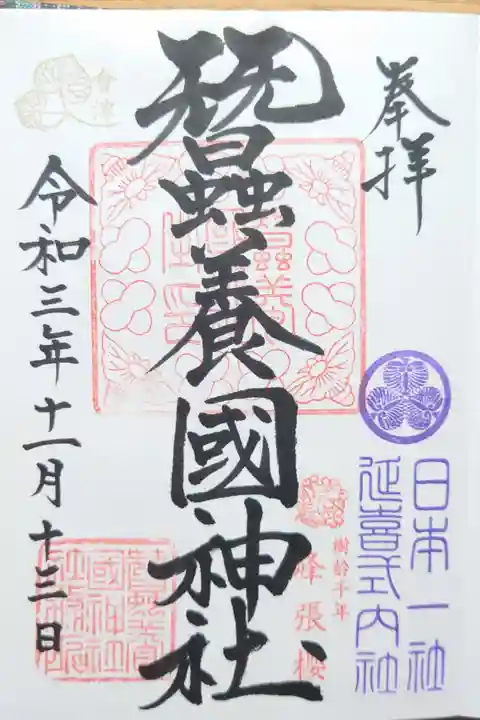 奉拝
日本一社
延喜式内社
樹齢千年
峰張櫻
蠶養國神社
會津
令和三年十一月十三日